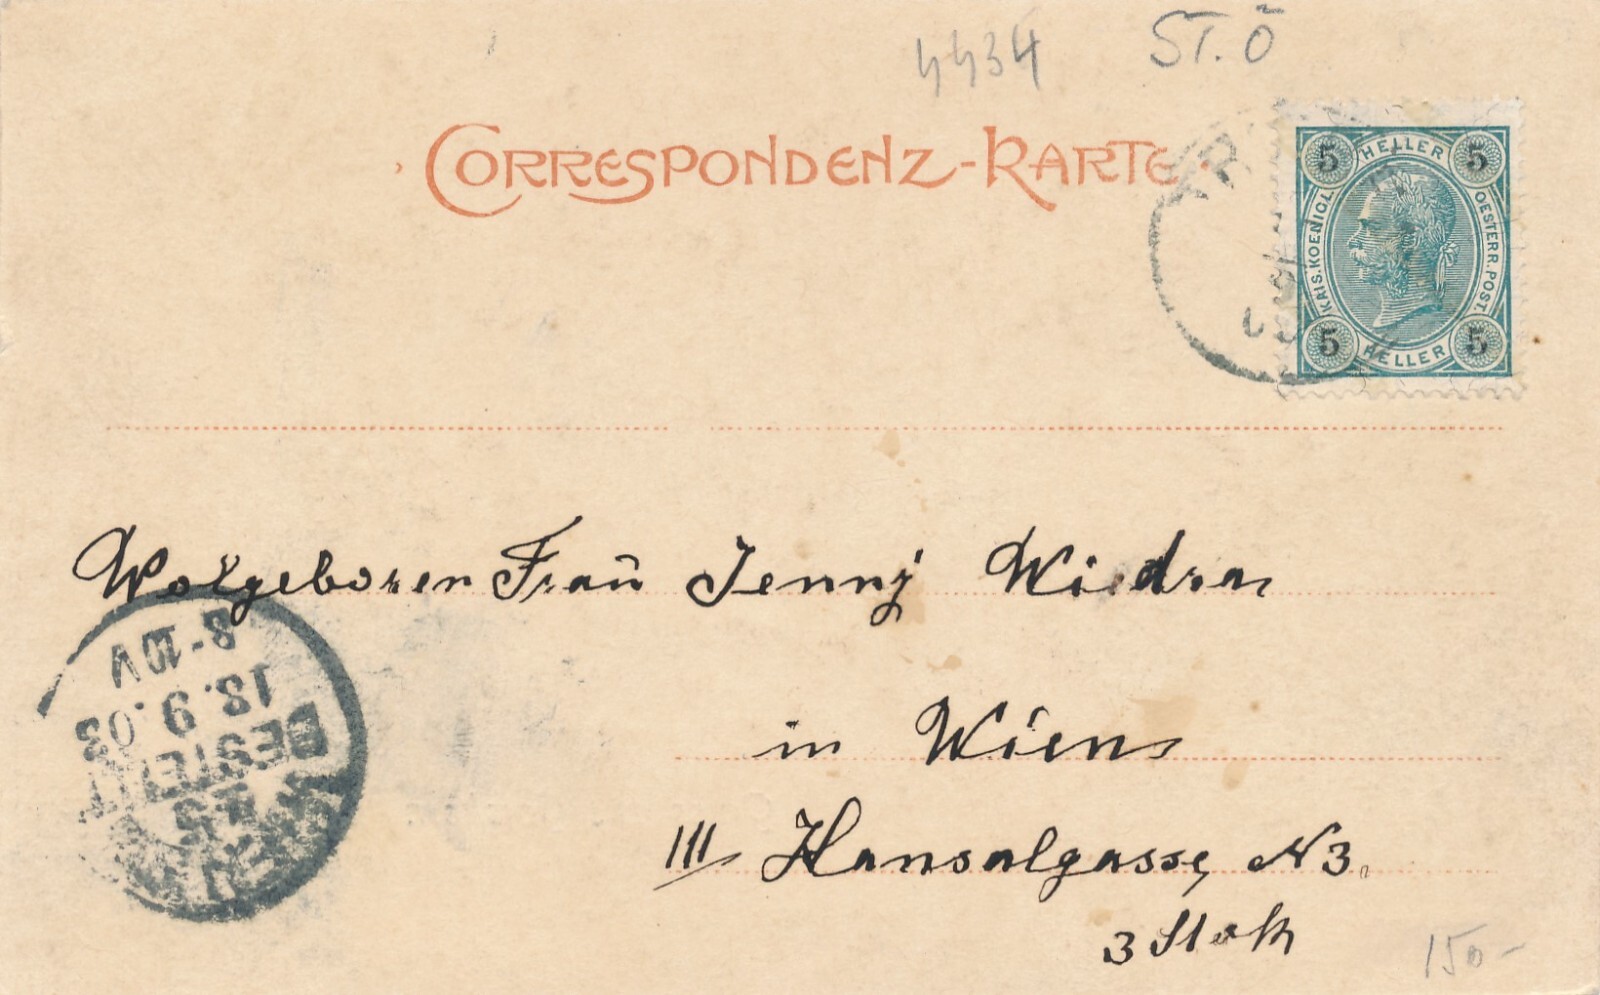 4434 ST. Ö
CORRESPONDENZ-KARTE
5 HELLER 5
KAIS. KOENIGL. OESTERR. POST.
5 HELLER 5
Wolgeboren Frau Jenny Wiedra
8-10V
18.9.03
BESTELLT
WIEN
in Wien
III Hansalgasse, N 3.
3 Stok
150-